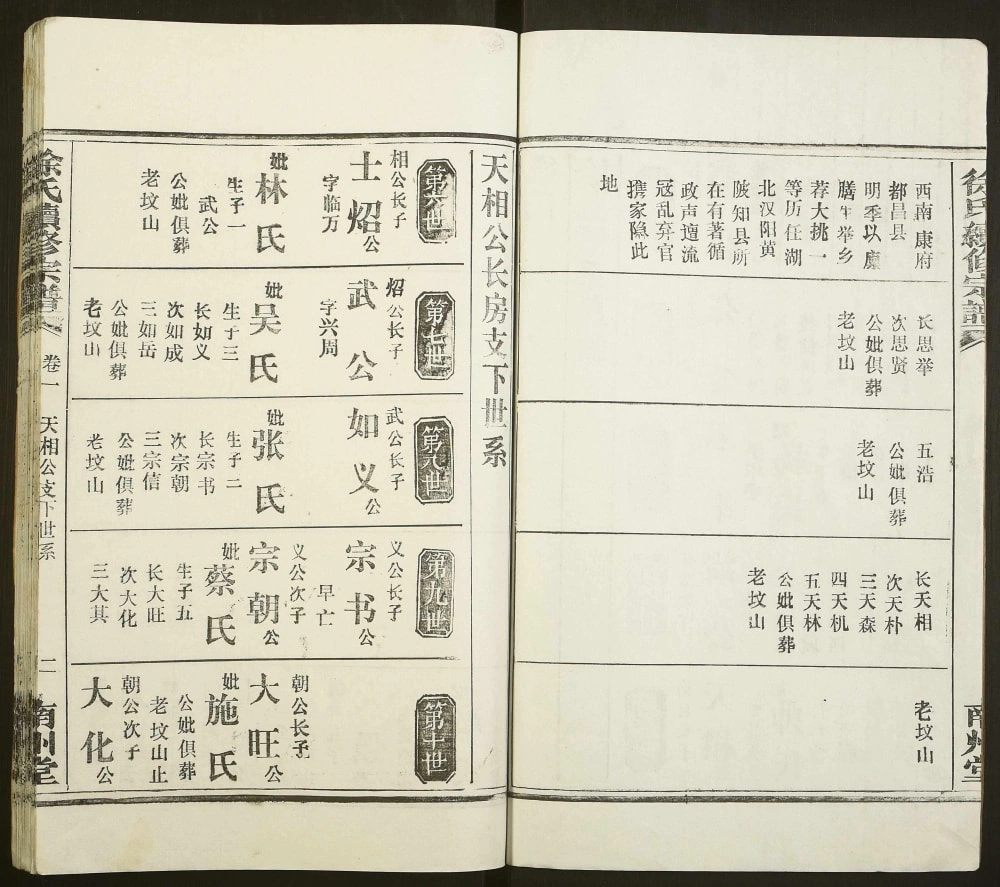 徐氏續修宗譜
南州堂
西南康府
都昌县
明季以廪
膳生举乡
荐大挑一
等历任湖
北汉阳黄
陂知县所
在有著循
政声遭流
冠乱弃官
携家隐此
地
长思举
次思贤
公妣俱葬
老坟山
五浩
公妣俱葬
老坟山
长天相
次天朴
三天森
四天机
五天林
公妣俱葬
老坟山
老坟山
天相公长房支下世系
第六世
相公长子
士炤公
字临万
妣林氏
生子一
武公
公妣俱葬
老坟山
第七世
炤公长子
武公
字兴周
妣吴氏
生于三
长如义
次如成
三如岳
公妣俱葬
老坟山
第八世
武公长子
如义公
妣张氏
生子二
长宗书
次宗朝
三宗信
公妣俱葬
老坟山
第九世
义公长子
宗书公
早亡
义公次子
宗朝公
妣蔡氏
生子五
长大旺
次大化
三大其
第十世
朝公长子
大旺公
妣施氏
公妣俱葬
老坟山止
朝公次子
大化公
徐氏續修宗譜
卷一
天相公支下世系
二
南州堂